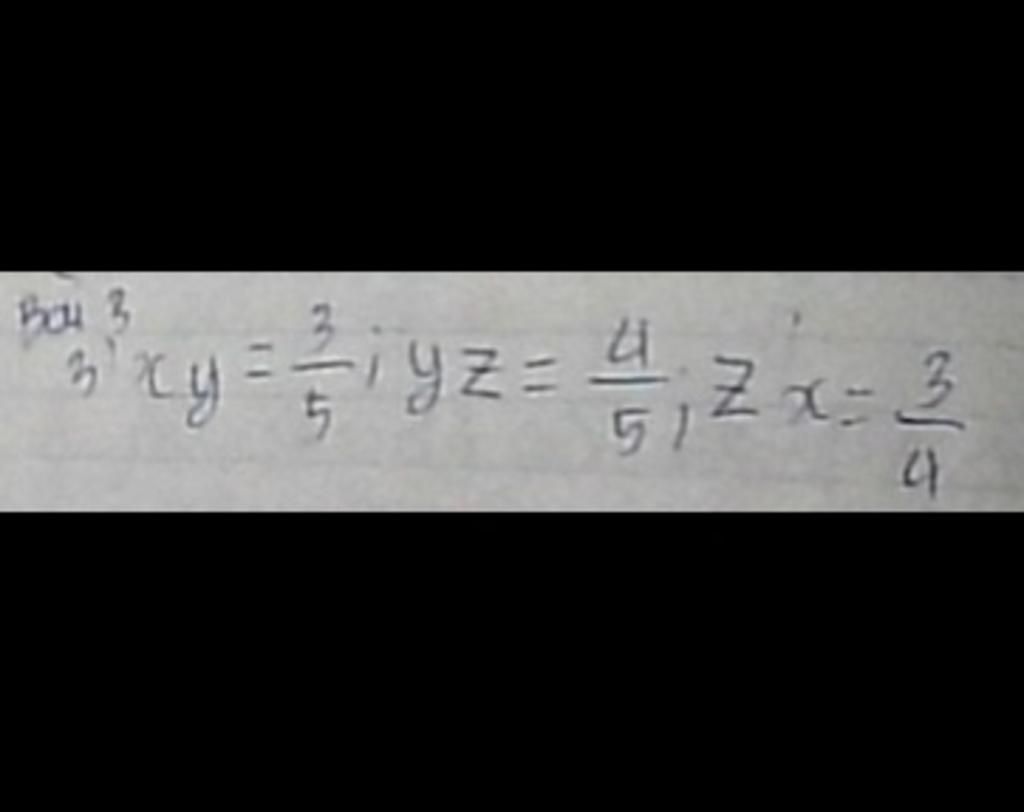 Bài 3
3' xy = 3/5 ; yz = 4/5 ; zx = 3/4